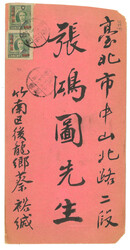 臺北市中山北路二段
張鴻圖先生
竹南区後龍鄉蔡裕緘